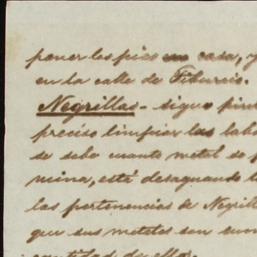 poner los pies en casa, y
en la calle de Tiburcio.
Negrillas - sigue
preciso limpiar las labo
se sabe cuanto metal se p
mina, está desaguando l
las pertenencias de Negrill
que sus metales son
cantidad de ellos.